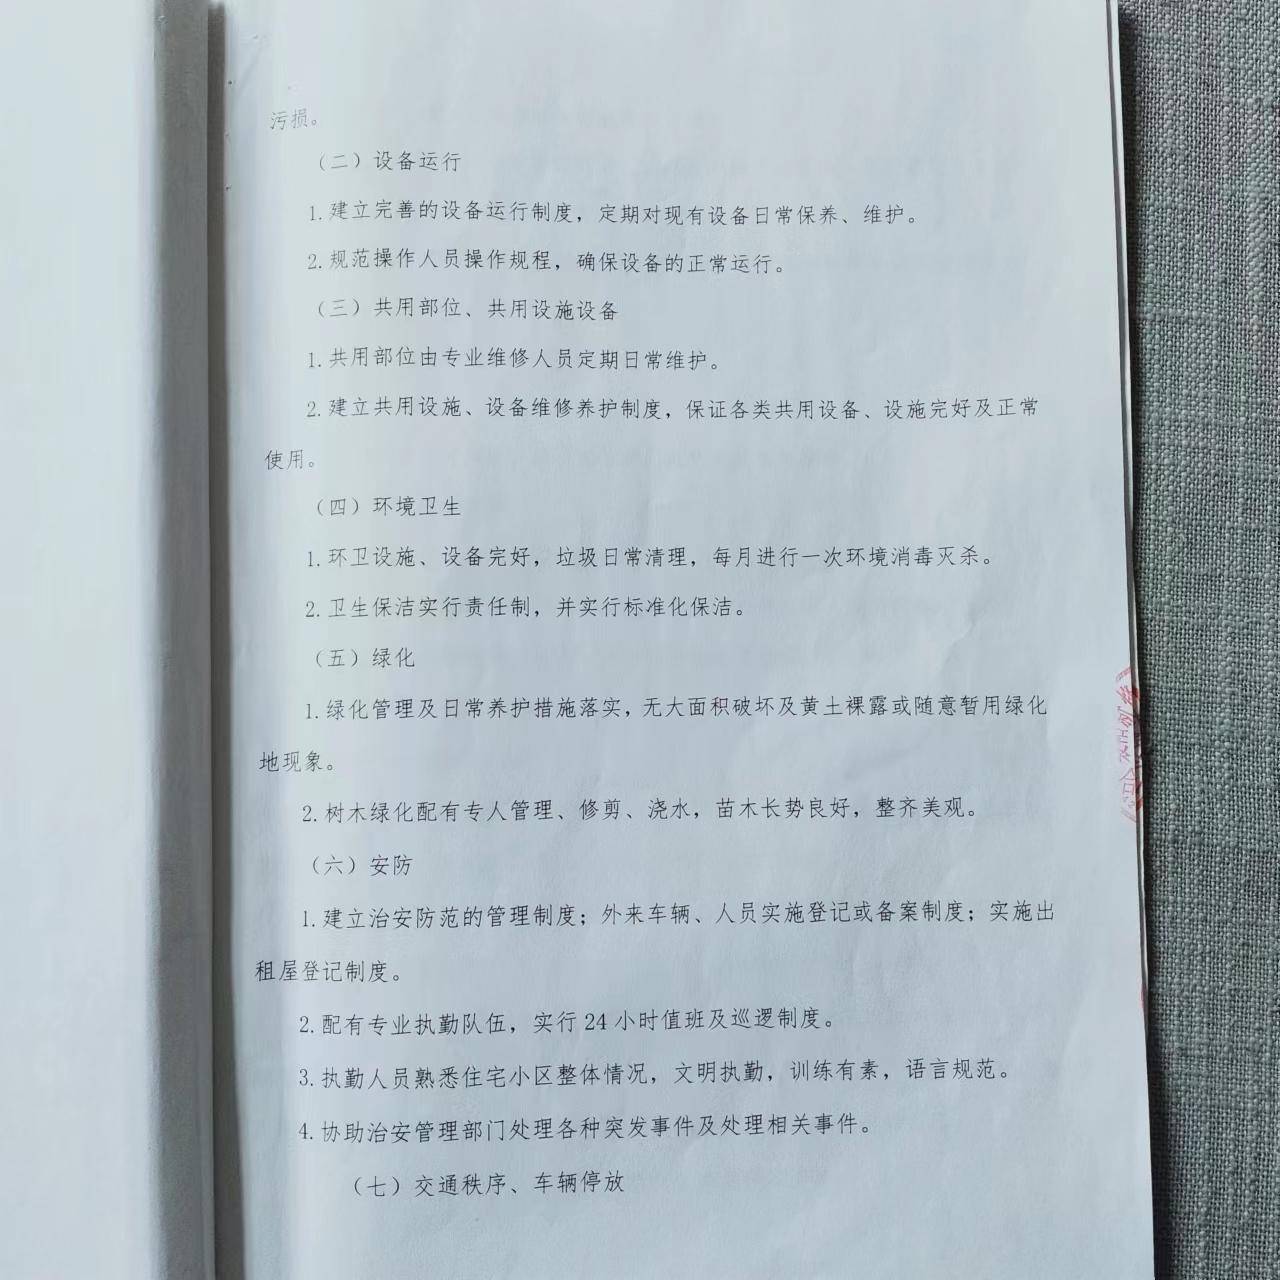 污损。
（二）设备运行
1.建立完善的设备运行制度，定期对现有设备日常保养、维护。
2.规范操作人员操作规程，确保设备的正常运行。
（三）共用部位、共用设施设备
1.共用部位由专业维修人员定期日常维护。
2.建立共用设施、设备维修养护制度，保证各类共用设备、设施完好及正常
使用。
（四）环境卫生
1.环卫设施、设备完好，垃圾日常清理，每月进行一次环境消毒灭杀。
2.卫生保洁实行责任制，并实行标准化保洁。
（五）绿化
1.绿化管理及日常养护措施落实，无大面积破坏及黄土裸露或随意暂用绿化
地现象。
2.树木绿化配有专人管理、修剪、浇水，苗木长势良好，整齐美观。
（六）安防
1.建立治安防范的管理制度；外来车辆、人员实施登记或备案制度；实施出
租屋登记制度。
2.配有专业执勤队伍，实行24小时值班及巡逻制度。
3.执勤人员熟悉住宅小区整体情况，文明执勤，训练有素，语言规范。
4.协助治安管理部门处理各种突发事件及处理相关事件。
（七）交通秩序、车辆停放